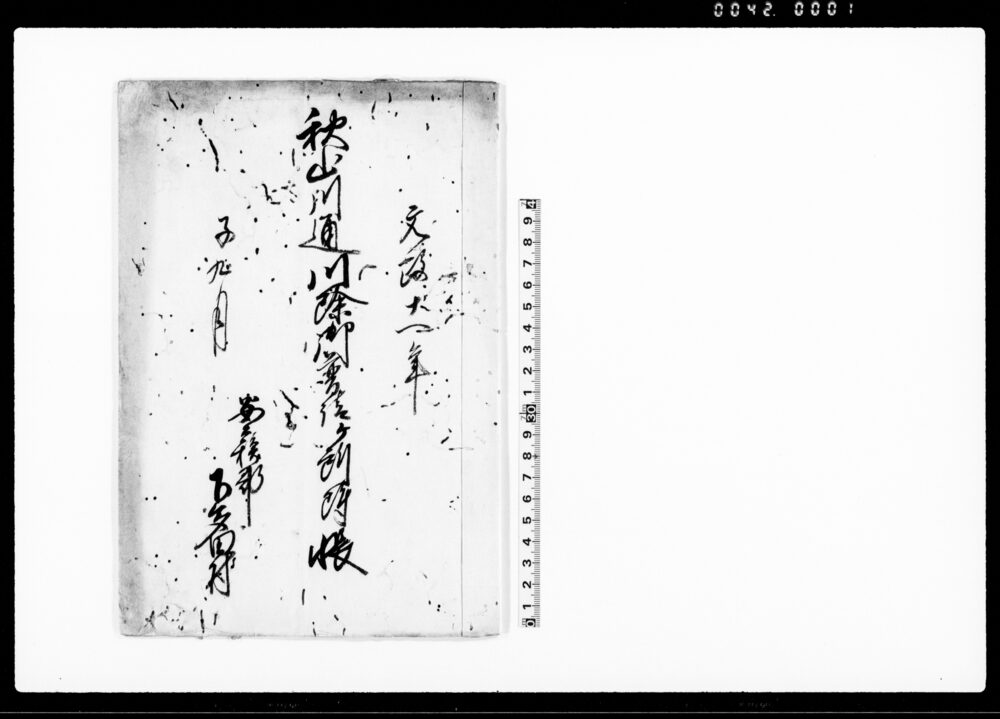 0042. 0001
文政十一年
秋山川通川除御普請ヶ所附帳
子九月
安蘇郡
0 1 2 3 4 5 6 7 8 9 30 1 2 3 4 5 6 7 8 9 4